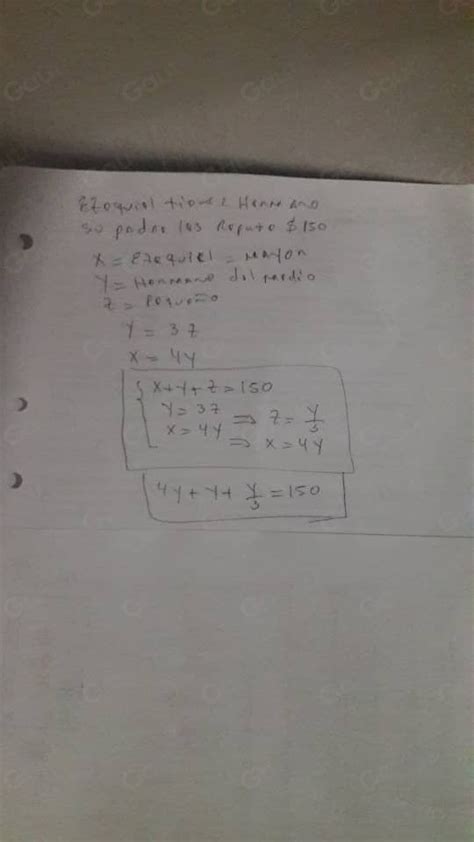 Ezequiel tiene 2 Hermano
su padre les Reputo $150
X = Ezequiel = Mayor
Y = Hermano del medio
Z = Pequeño
Y = 3Z
X = 4Y
X+Y+Z=150
Y=3Z ⇒ Z=Y/3
X=4Y ⇒ X=4Y
4Y+Y+Y/3=150